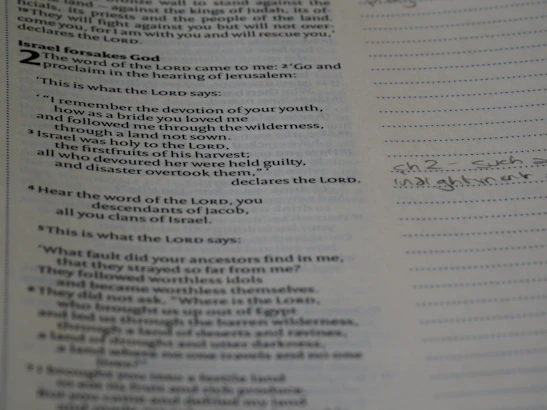 land — against the kings of Judah, its of-
ficials, its priests and the people of the land.
¹⁹They will fight against you but will not over-
come you, for I am with you and will rescue you,'
declares the LORD.
Israel forsakes God
2 The word of the LORD came to me: ²'Go and
proclaim in the hearing of Jerusalem:
'This is what the LORD says:
'"I remember the devotion of your youth,
how as a bride you loved me
and followed me through the wilderness,
through a land not sown.
³Israel was holy to the LORD,
the firstfruits of his harvest;
all who devoured her were held guilty,
and disaster overtook them,"'
declares the LORD.
⁴Hear the word of the LORD, you
descendants of Jacob,
all you clans of Israel.
⁵This is what the LORD says:
'What fault did your ancestors find in me,
that they strayed so far from me?
They followed worthless idols
and became worthless themselves.
⁶They did not ask, "Where is the LORD,
who brought us up out of Egypt
and led us through the barren wilderness,
through a land of deserts and ravines,
a land of drought and utter darkness,
a land where no one travels and no one
lives?"
⁷I brought you into a fertile land
to eat its fruit and rich produce.
But you came and defiled my land
ch 2 - such